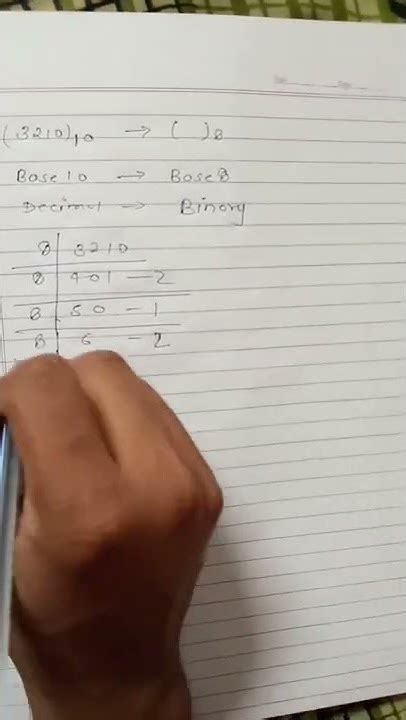 (3210)10 → ( )8
Base10 → Base8
Decimal → Binary
8 3210
8 401 — 2
8 50 — 1
8 6 — 2